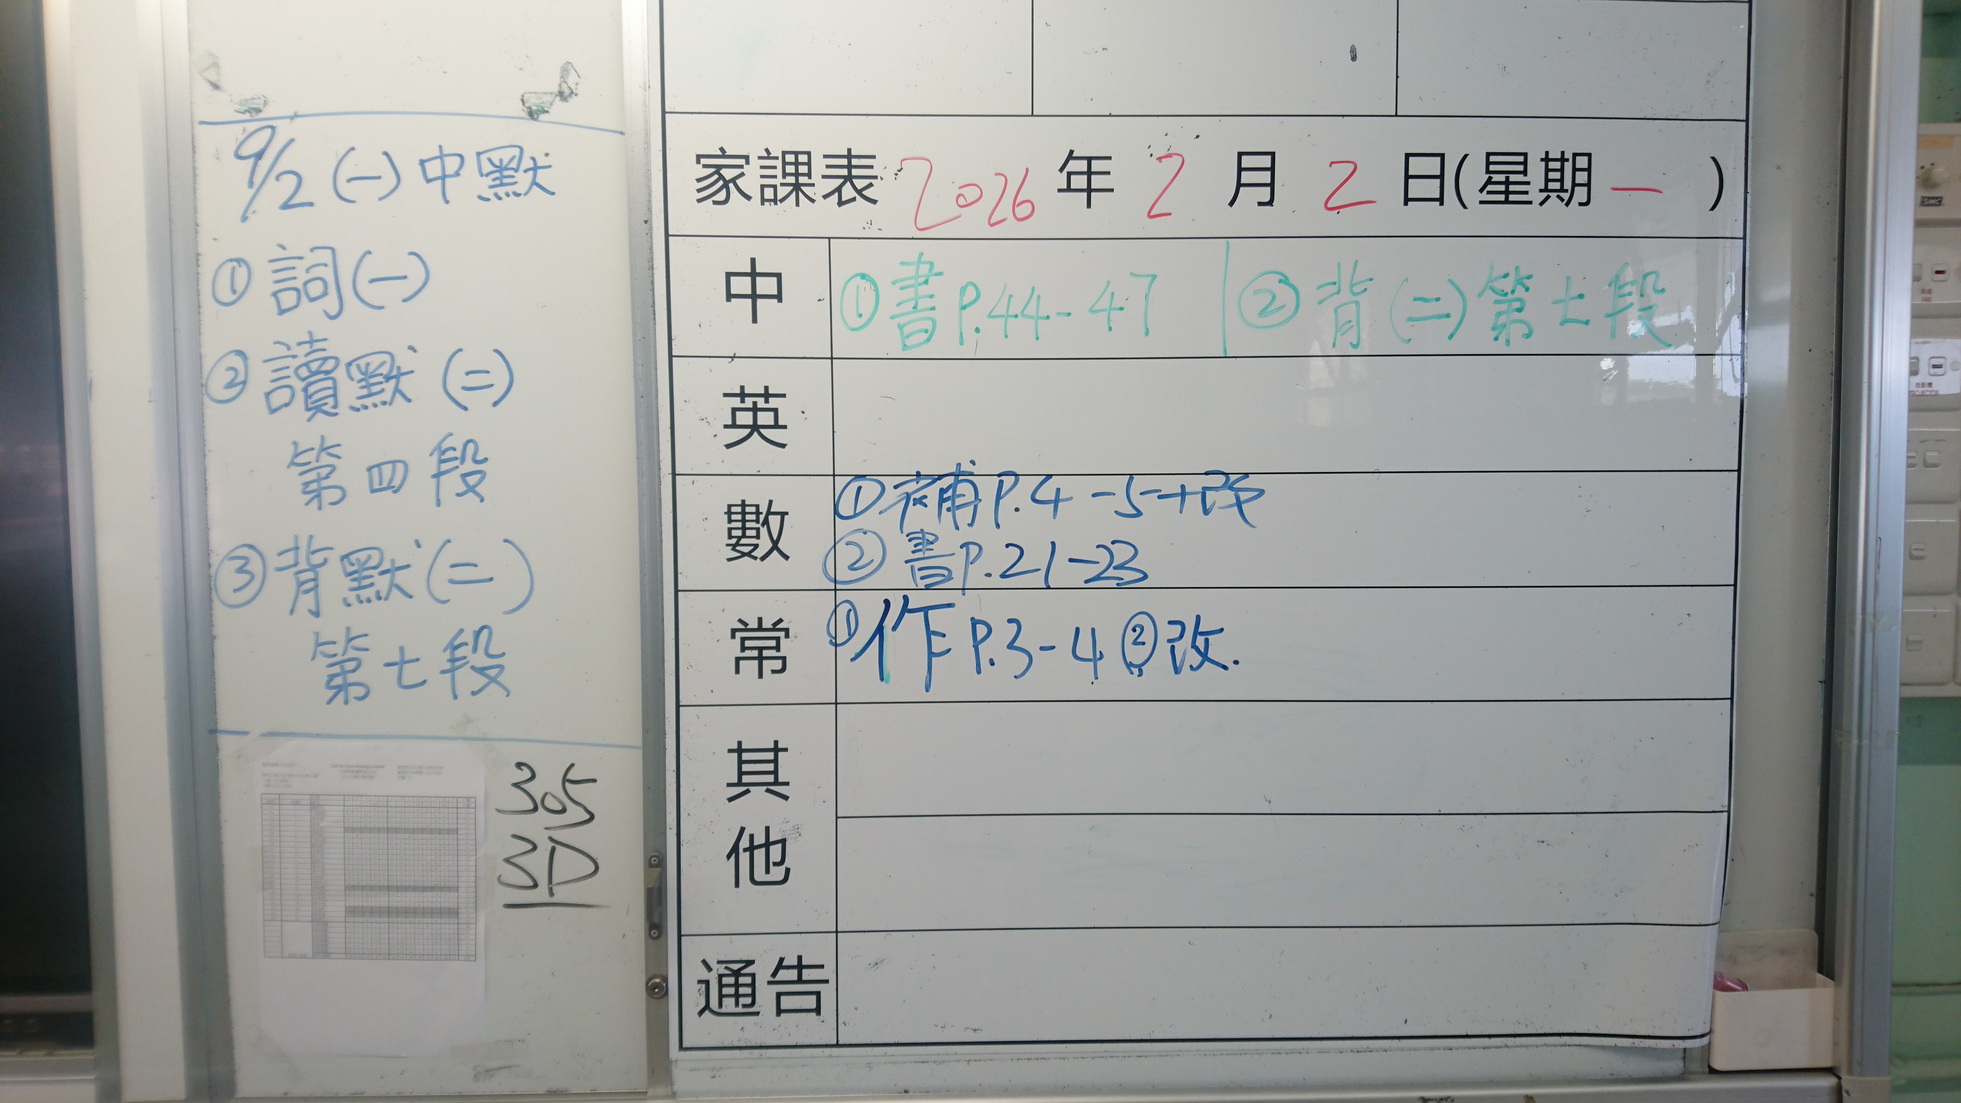 9/2 (一) 中默
① 詞(一)
② 讀默 (二)
第四段
③ 背默(二)
第七段
305
3D
家課表 2026 年 2 月 2 日(星期一)
中
①書P.44-47 | ②背(二)第七段
英
數
①補P.4-5+改
②書P.21-23
常
①作P.3-4 ②改.
其他
通告